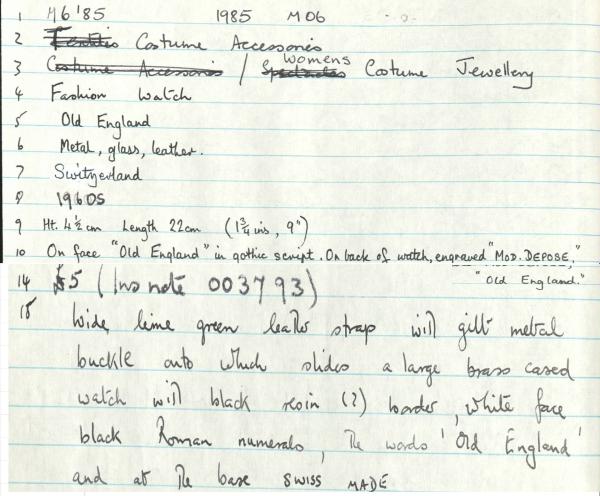 1 M6'85 1985 M06
2 Textiles Costume Accessories
3 Costume Accessories / Spectacles Womens Costume Jewellery
4 Fashion Watch
5 Old England
6 Metal, glass, leather.
7 Switzerland
8 1960s
9 Ht. 4½cm Length 22cm (1¾ins, 9")
10 On face "Old England" in gothic script. On back of watch, engraved "MOD. DEPOSE,"
"Old England."
14 £5 (Ins note 003793)
18 Wide, lime green leather strap with gilt metal
buckle onto which slides a large brass cased
watch with black resin (?) border, white face
black Roman numerals, The words 'Old England'
and at the base SWISS MADE